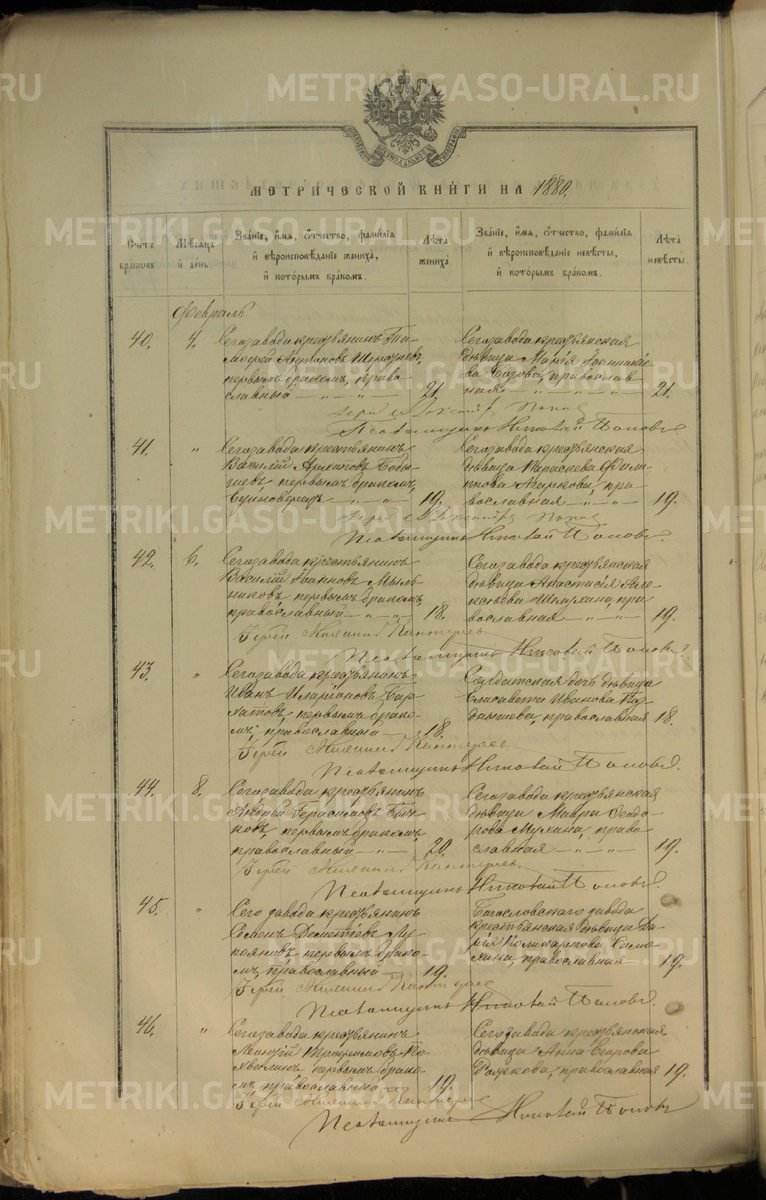 METRIKI.GASO-URAL.RU
МЕТРИЧЕСКОЙ КНИГИ НА 1880.
Счетъ браковъ.
Мѣсяцъ и день.
Званіе, имя, отчество, фамилія и вѣроисповѣданіе жениха, и которымъ бракомъ.
Лѣта жениха.
Званіе, имя, отчество, фамилія и вѣроисповѣданіе невѣсты, и которымъ бракомъ.
Лѣта невѣсты.
Февраль
40. 4. Сего завода крестьянинъ
первымъ бракомъ, право
славный 21.
Сего завода крестьянская
дѣвица Марія
православ
ная 21.
Псаломщикъ Николай Поповъ
41. " Сего завода крестьянинъ
Василій
первымъ бракомъ,
Единовѣрецъ 19.
Сего завода крестьянская
дѣвица Параскева Филип
пова пра
вославная 19.
Псаломщикъ Николай Поповъ.
42. 6. Сего завода крестьянинъ
Василій Іоанновъ Мыль
никовъ первымъ бракомъ,
православный 18.
Сего завода крестьянская
дѣвица Анастасія Але
ксѣева пра
вославная 19.
Іерей
Псаломщикъ Николай Поповъ.
43. " Сего завода крестьянинъ
Иванъ Иларіоновъ Бар
хатовъ, первымъ брако
мъ, православный 18.
Солдатская дочь дѣвица
Елисавета Иванова
православная 18.
Іерей
Псаломщикъ Николай Поповъ.
44. 8. Сего завода крестьянинъ
Андрей Герасимовъ Быч
ковъ, первымъ бракомъ,
православный 20.
Сего завода крестьянская
дѣвица Мавра Ѳедо
рова Мухина, право
славная 19.
Іерей
Псаломщикъ Николай Поповъ.
45. " Сего завода крестьянинъ
Семенъ Дементіевъ Лу
кояновъ первымъ брако
мъ, православный 19.
Богословскаго завода
крестьянская дѣвица Да
рья Поликарпова
православная 19.
Іерей
Псаломщикъ Николай Поповъ.
46. " Сего завода крестьянинъ
Трофимовъ
первымъ брако
мъ, православный 19.
Сего завода крестьянская
дѣвица Анна Егорова
православная 19.
Іерей
Псаломщикъ Николай Поповъ